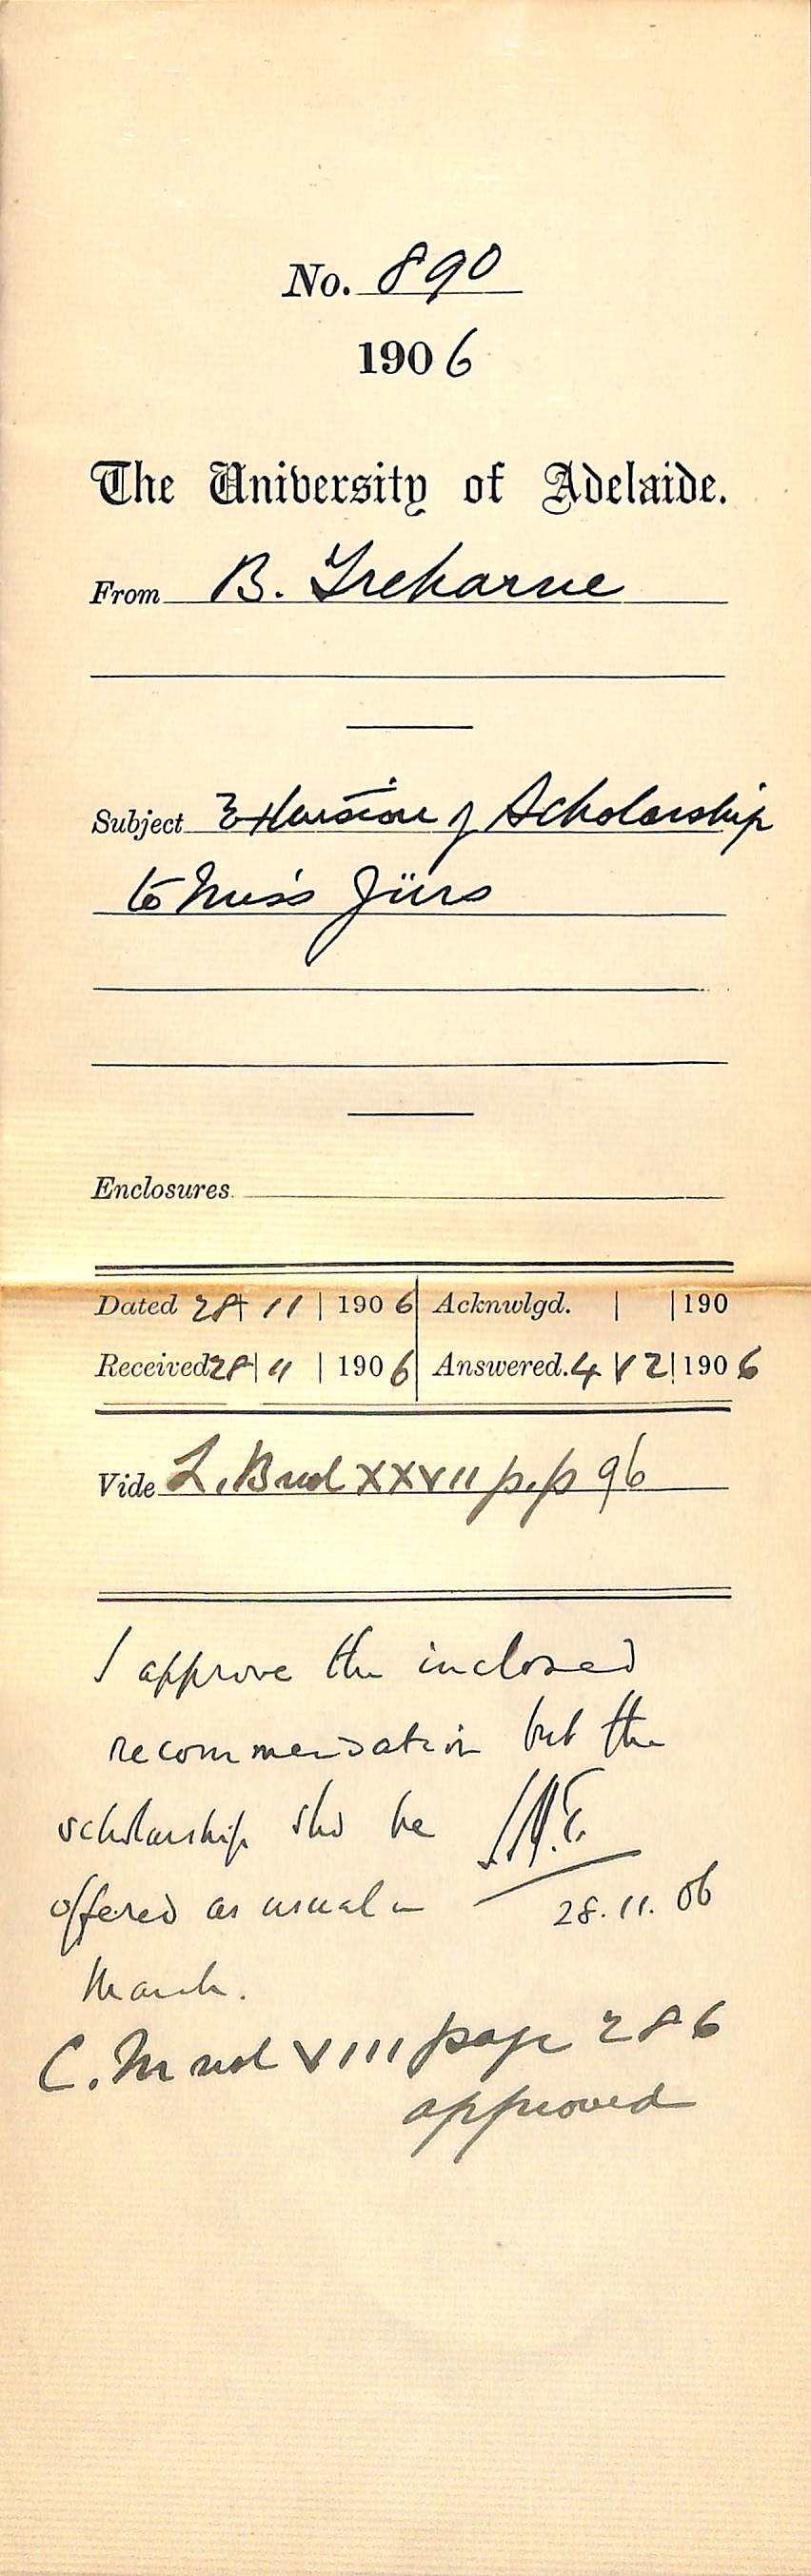 No. 890
1906
The University of Adelaide.
From B. Treharne
Subject Extension of Scholarship
to Miss Jürs
Enclosures
Dated 28 | 11 | 1906 Acknwlgd. | | 190
Received 28 | 11 | 1906 Answered. 4 | 12 | 1906
Vide L. B vol XXVII p.p 96
I approve the inclosed
recommendation but the
scholarship shd be
offered as usual in
28. 11. 06
March.
C. M vol VIII page 286
approved